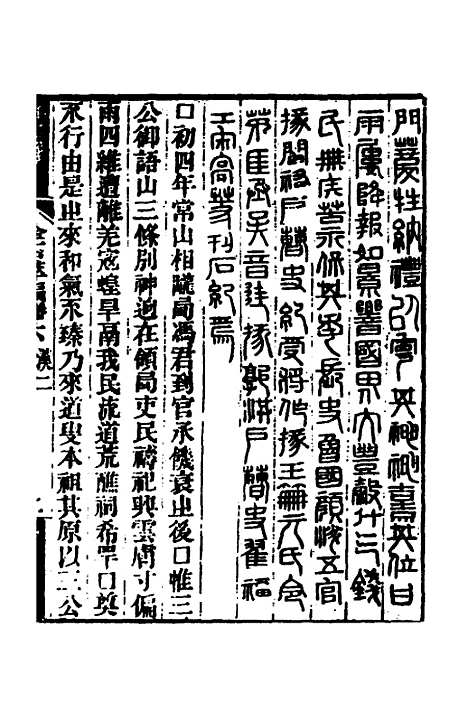 門薦牲納禮以寧其神神熹其位甘
雨屢降報如景響國界大豐穀斗三錢
民無疾苦永保其年長史魯國顏浮五官
掾閻祐戶曹史紀受將作掾王笧元氏令
茅匡丞吳音廷掾郭洪戶曹史翟福
工宋高等刊石紀焉
囗初四年常山相隴西馮君到官承饑衰之後囗惟三
公御語山三條別神迥在領西吏民禱祀興雲膚寸偏
雨四維遭離羌寇蝗旱鬲我民流道荒醮祠希罕囗奠
不行由是之來和氣不臻乃來道要本祖其原以三公
金石萃編卷六 漢二